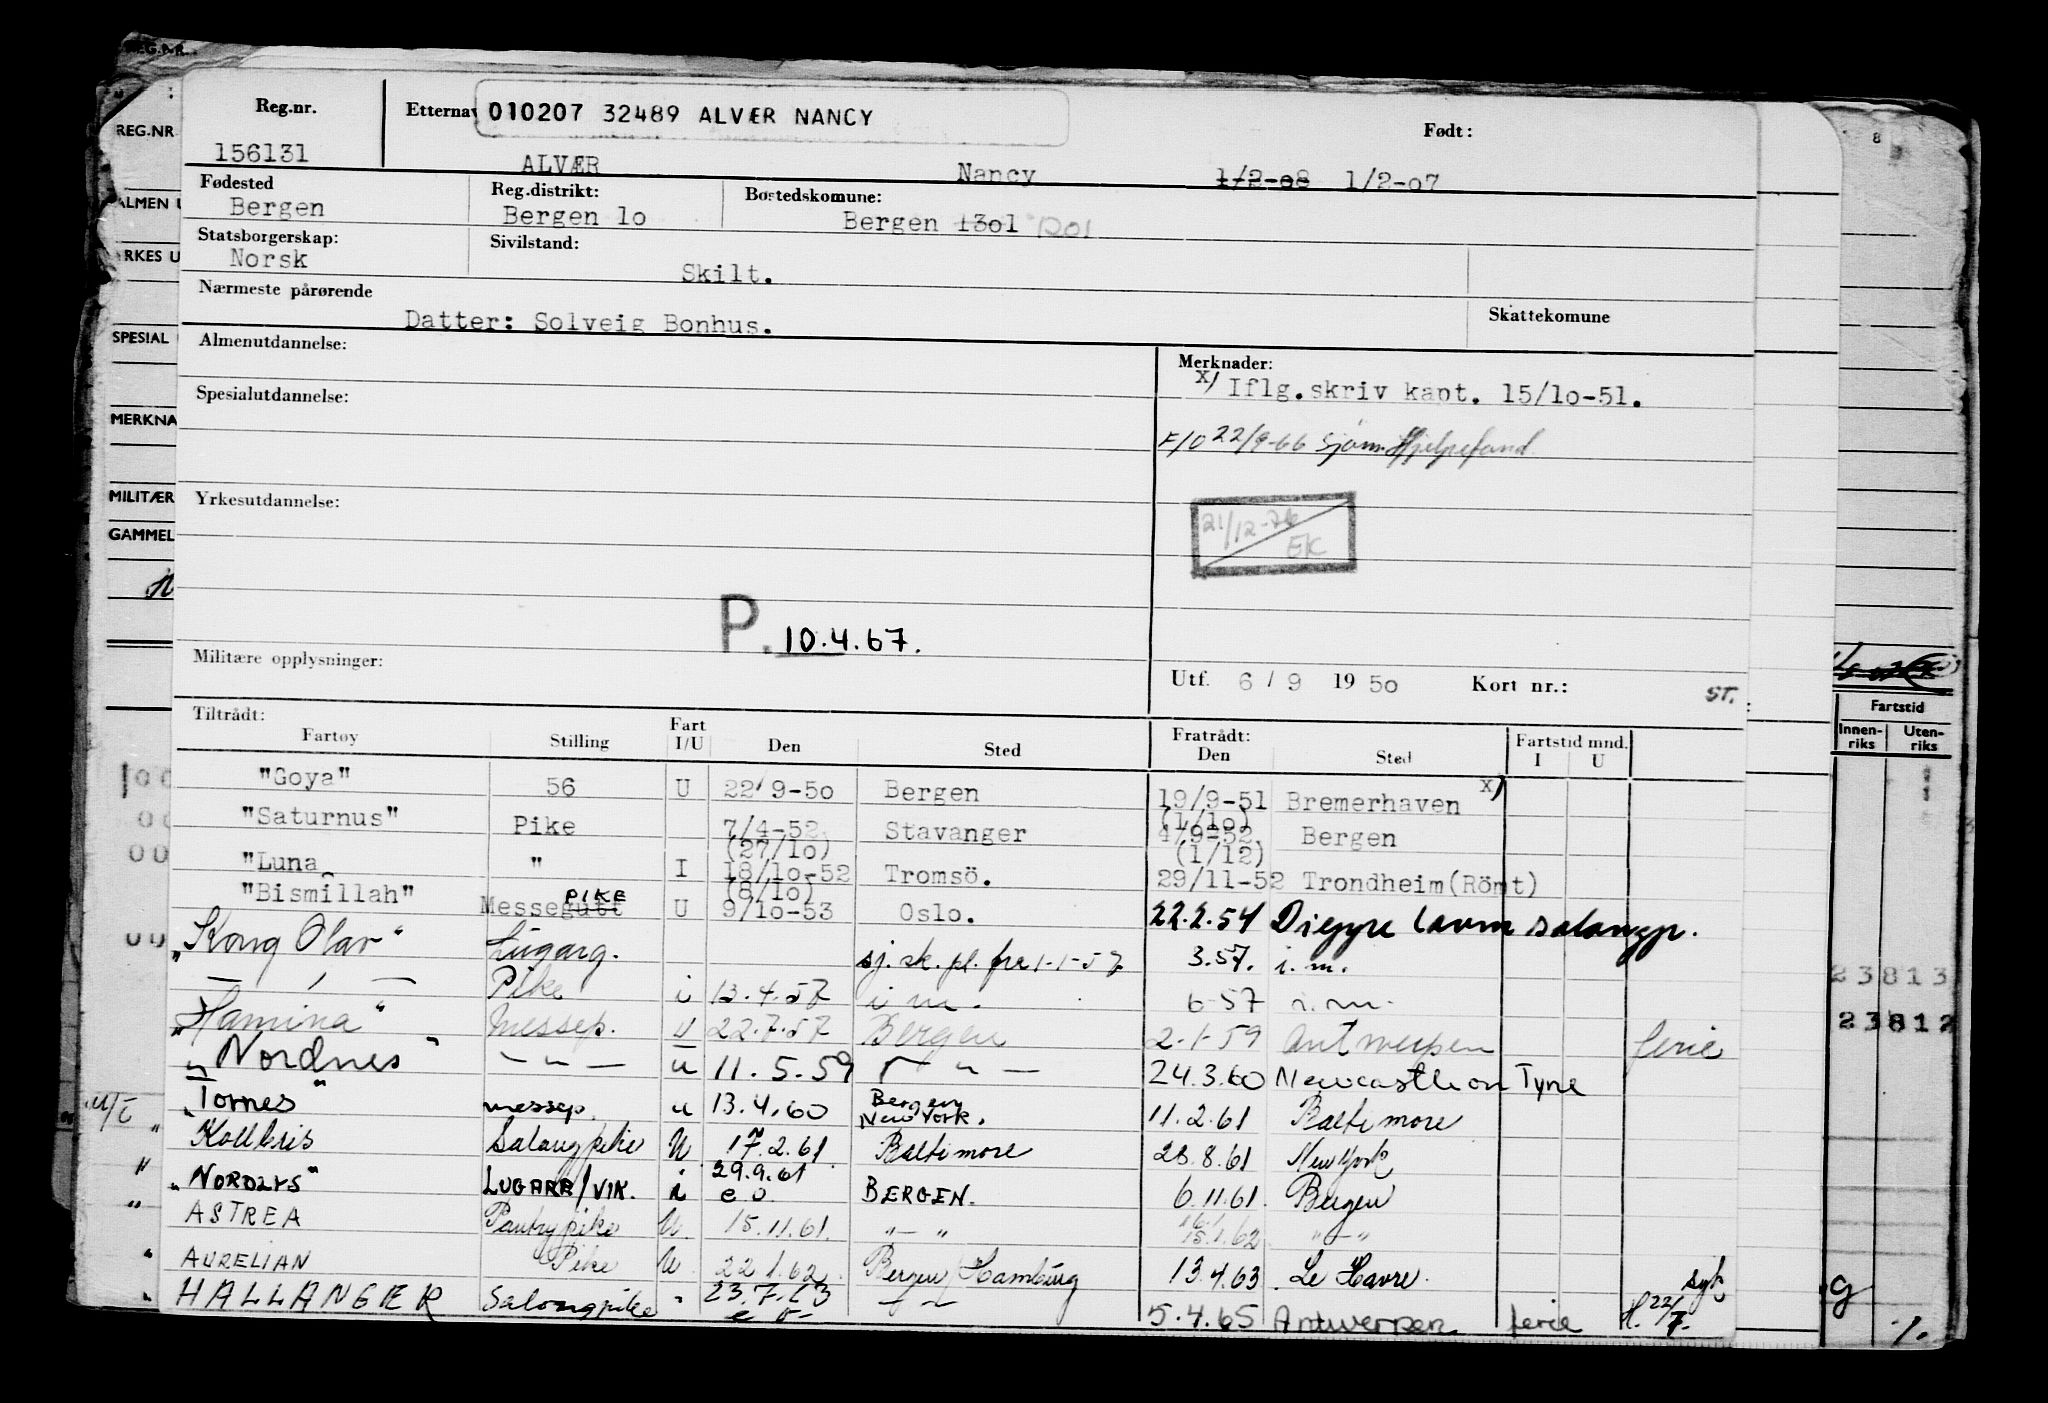 REG.NR.
Reg.nr. Etternav 010207 32489 ALVÆR NANCY Født: 8
REG.NR
156131 ALVÆR Nancy 1/2-08 1/2-07
Fødested Reg.distrikt: Bostedskomune:
ALMEN U Bergen Bergen 10 Bergen 1301 1201
Statsborgerskap: Sivilstand:
RKES U Norsk Skilt.
Nærmeste pårørende Skattekomune
Datter: Solveig Bonhus.
SPESIAL Almenutdannelse: Merknader:
x) Iflg.skriv kapt. 15/10-51.
Spesialutdannelse:
MERKNA F/O 22/9-66 Sjøm.Hjelpefond.
MILITÆR Yrkesutdannelse: 21/12-76 EK
GAMMEL
P. 10.4.67.
Militære opplysninger: Utf. 6 / 9 19 50 Kort nr.: ST.
Tiltrådt: Fratrådt: Fartstid
Fartøy Stilling Fart I/U Den Sted Den Sted Fartstid mnd. I U Innen-riks Uten-riks
"Goya" 56 U 22/9-50 Bergen 19/9-51 Bremerhaven x)
"Saturnus" Pike 7/4-52 Stavanger (1/10) 4/9-52 Bergen
"Luna " I (27/10) 18/10-52 Tromsö. (1/12) 29/11-52 Trondheim(Römt)
"Bismillah" Messegutt PIKE U (8/10) 9/10-53 Oslo. 22.2.54 Dieppe lavm salongp.
"Kong Olav" Lugarg. sj.sk.pl. fra 1-1-57 3.57. i.m.
— " — Pike i 13.4.57 i m. 6-57 i.m.
"Hamina" messep. u 22.7.57 Bergen 2-1-59 Antwerpen ferie
"Nordnes" — " — u 11.5.59 — " — 24.3.60 Newcastle on Tyne
M/T "Tornes" messep. u 13.4.60 Bergen New York. 11.2.61 Baltimore
" Kollbris Salongpike U 17.2.61 Baltimore 28.8.61 New York
" "NORDLYS" LUGARP/VIK. i 29.9.61 e o. BERGEN. 6.11.61. Bergen
" ASTREA Pantrypike U. 15.11.61. " — " 16.1. 15.1.62 " — "
" AURELIAN Pike U. 22.1.62. Bergen/Hamburg 13.4.63. Le Havre. syk
" HALLANGER Salongpike " 23.7.63 e o — " — 5.4.65 Antwerpen ferie H. 22/7.
23813
23812